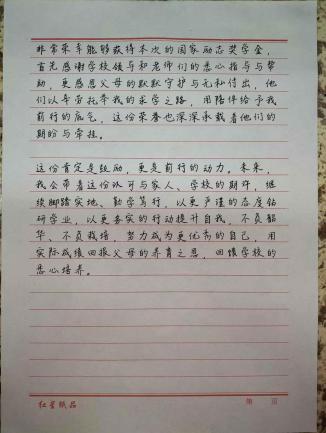 非常荣幸能够获得本次的国家励志奖学金，
首先感谢学校领导和老师们的悉心指导与帮
助，更感恩父母的默默守护与无私付出，他
们以辛劳托举我的求学之路，用陪伴给予我
前行的底气，这份荣誉也深深承载着他们的
期盼与牵挂。
这份肯定是鼓励，更是前行的动力。未来，
我会带着这份认可与家人、学校的期许，继
续脚踏实地、勤学笃行，以更严谨的态度钻
研学业，以更务实的行动提升自我，不负韶
华、不负栽培，努力成为更优秀的自己，用
实际成绩回报父母的养育之恩，回馈学校的
悉心培养。
红星纸品 第 页